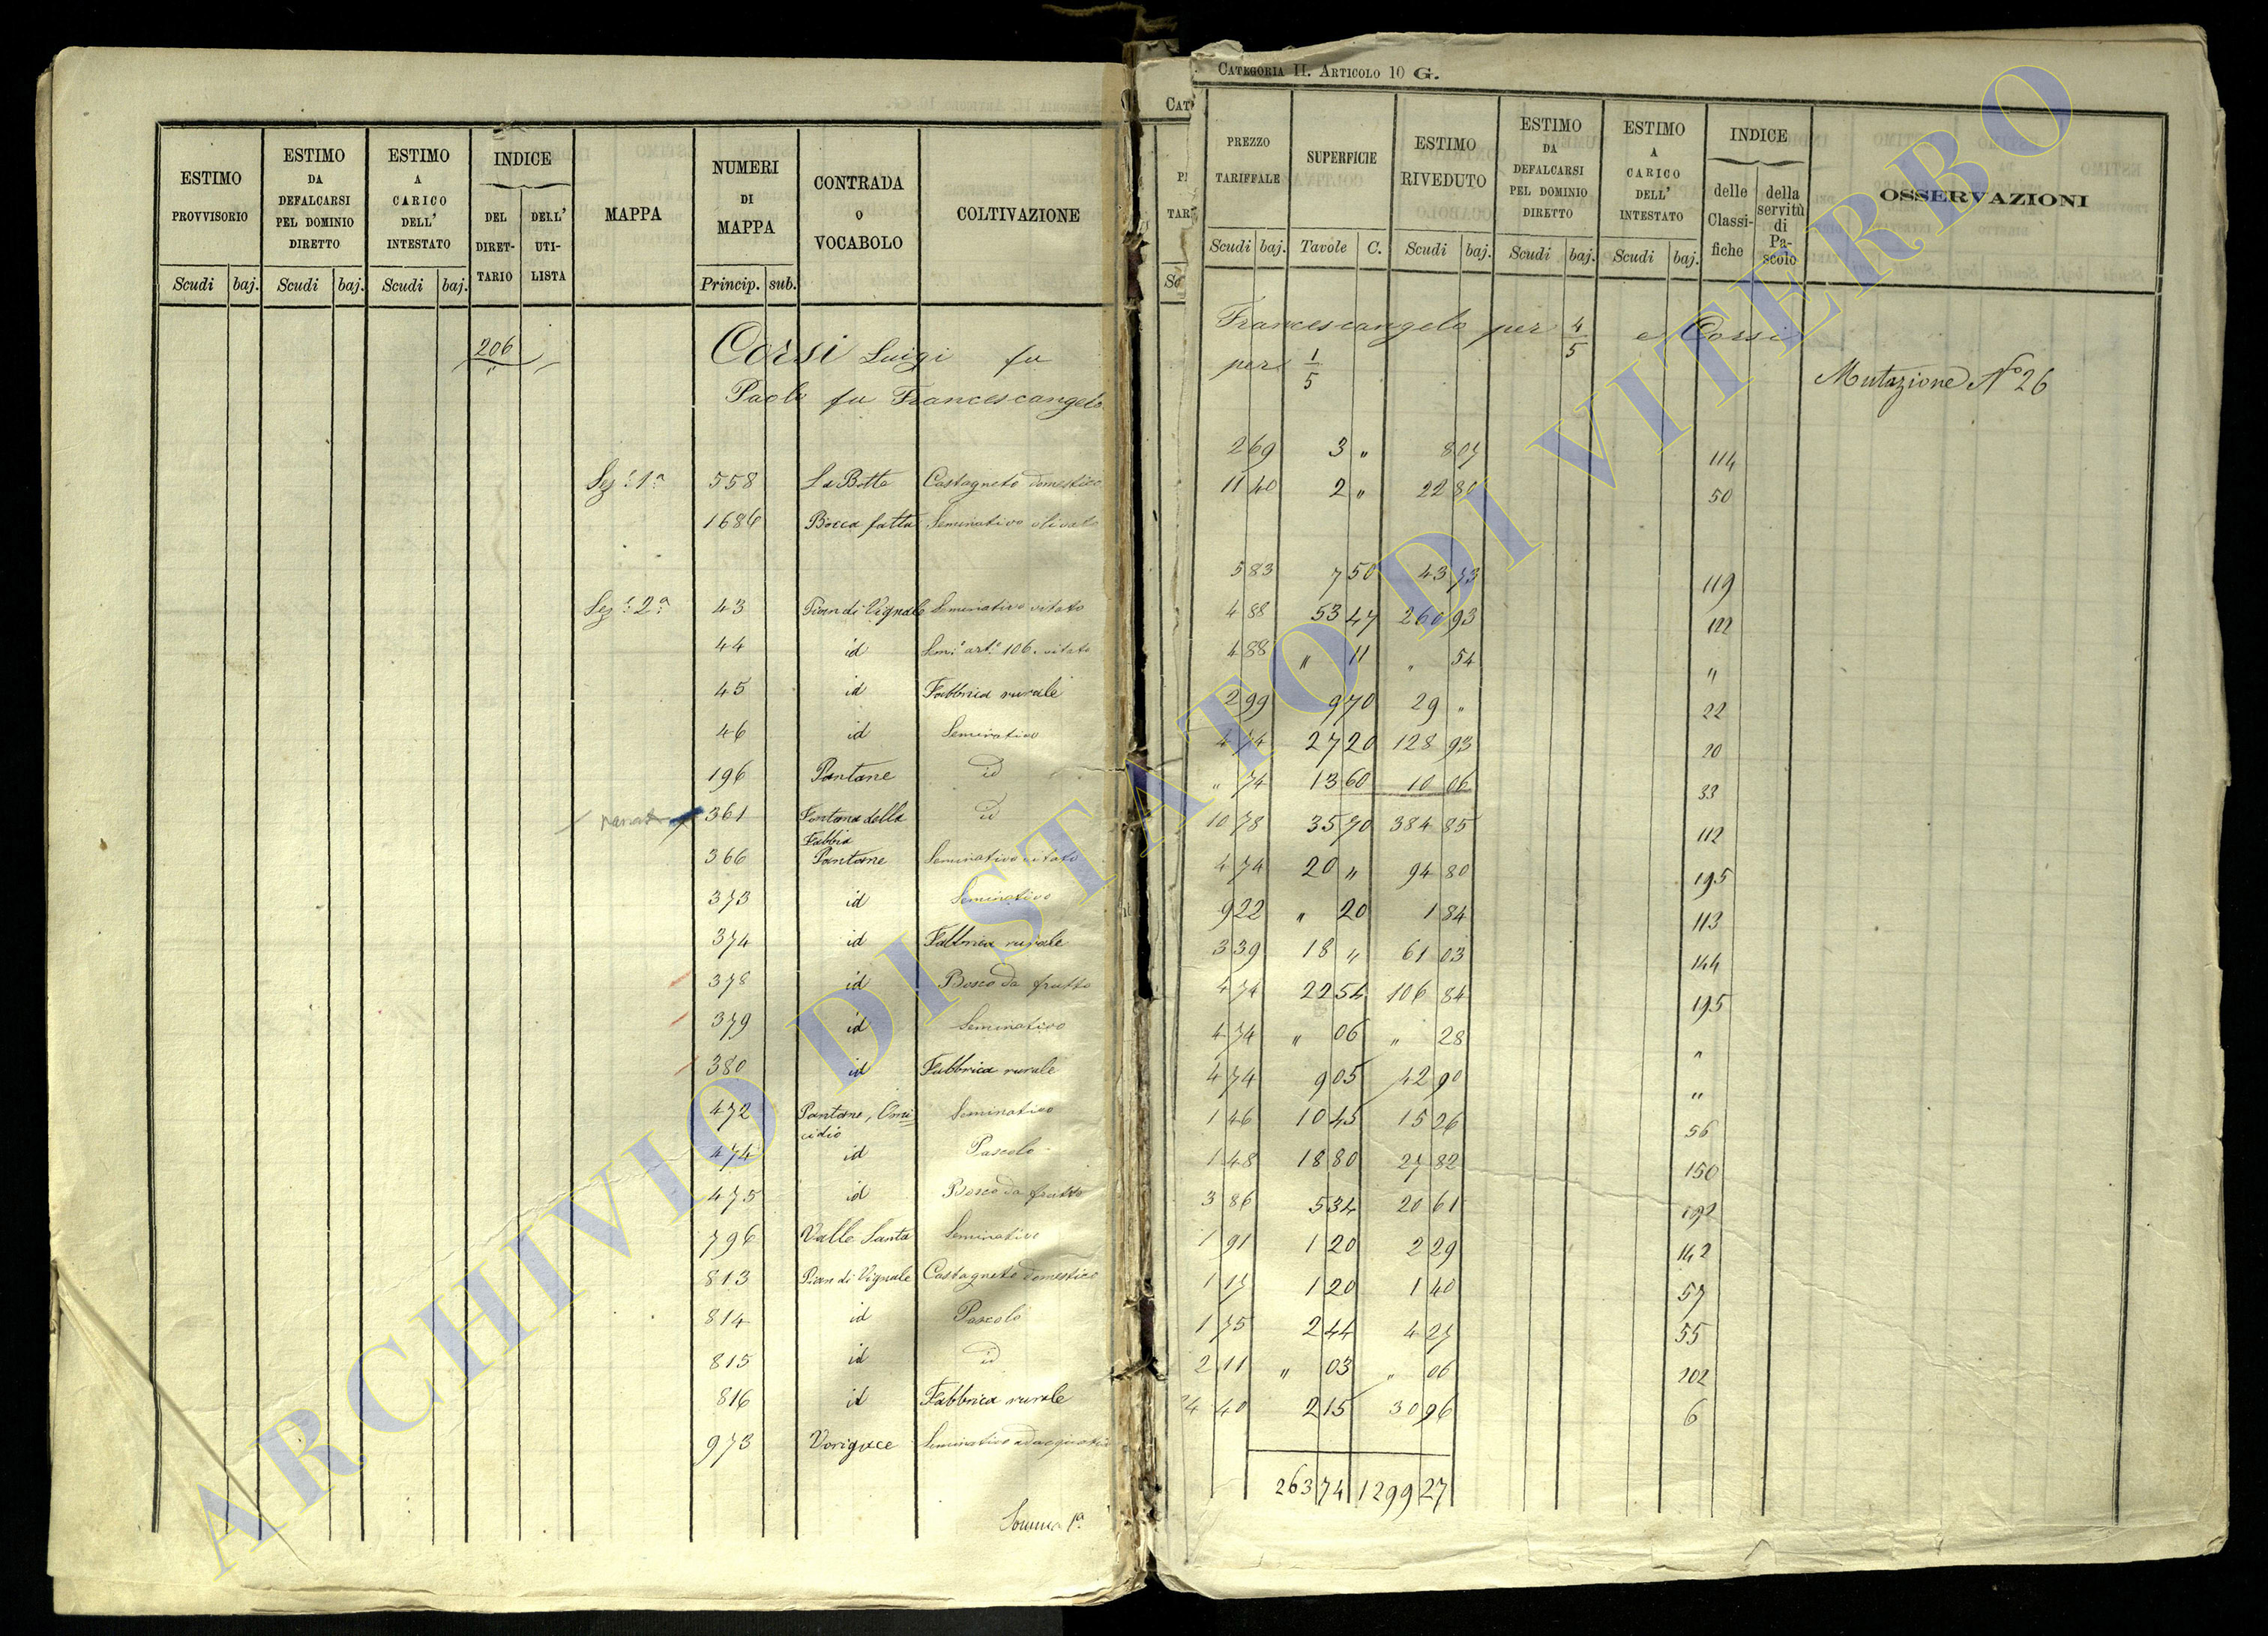 CATEGORIA II. ARTICOLO 10 G.
ESTIMO PROVVISORIO
ESTIMO DA DEFALCARSI PEL DOMINIO DIRETTO
ESTIMO A CARICO DELL' INTESTATO
INDICE
DEL DIRET-TARIO
DELL' UTI-LISTA
MAPPA
NUMERI DI MAPPA
CONTRADA O VOCABOLO
COLTIVAZIONE
Scudi baj. Scudi baj. Scudi baj. Princip. sub.
PREZZO TARIFFALE
SUPERFICIE
ESTIMO RIVEDUTO
ESTIMO DA DEFALCARSI PEL DOMINIO DIRETTO
ESTIMO A CARICO DELL' INTESTATO
INDICE
delle Classi-fiche
della servitù di Pa-scolo
OSSERVAZIONI
Scudi baj. Tavole C. Scudi baj. Scudi baj. Scudi baj.
206 Corsi Luigi fu Francescangelo per 4/5 e Corsi
Paolo fu Francescangelo per 1/5
Mutazione No 26
Sez. 1a 558 La Botte Castagneto domestico 2 69 3 " 8 07 114
1686 Bocca fatta Seminativo olivato 11 40 2 " 22 80 50
Sez. 2a 43 Pian di Vignale Seminativo vitato 5 83 7 50 43 73 119
44 id Semo arto 106. vitato 4 88 53 47 260 93 122
45 id Fabbrica rurale 4 88 " 11 " 54 "
46 id Seminativo 2 99 9 70 29 " 22
196 Pantane id 4 74 27 20 128 93 20
361 Fontana della Fabbia id " 74 13 60 10 06 33
366 Pantane Seminativo vitato 10 78 35 70 384 85 112
373 id Seminativo 4 74 20 " 94 80 195
374 id Fabbrica rurale 9 22 " 20 1 84 113
378 id Bosco da frutto 3 39 18 " 61 03 144
379 id Seminativo 4 74 22 54 106 84 195
380 id Fabbrica rurale 4 74 " 06 " 28 "
472 Pantane, Omicidio Seminativo 4 74 9 05 42 90 "
474 id Pascolo 1 46 10 45 15 26 56
475 id Bosco da frutto 1 48 18 80 27 82 150
796 Valle Santa Seminativo 3 86 5 34 20 61 192
813 Pian di Vignale Castagneto domestico 1 91 1 20 2 29 142
814 id Pascolo 1 17 1 20 1 40 57
815 id id 1 75 2 44 4 27 55
816 id Fabbrica rurale 2 11 " 03 " 06 202
973 Vorigace Seminativo adacquativo 40 2 15 30 96 6
Somma 1a 263 74 1299 27
ARCHIVIO DI STATO DI VITERBO